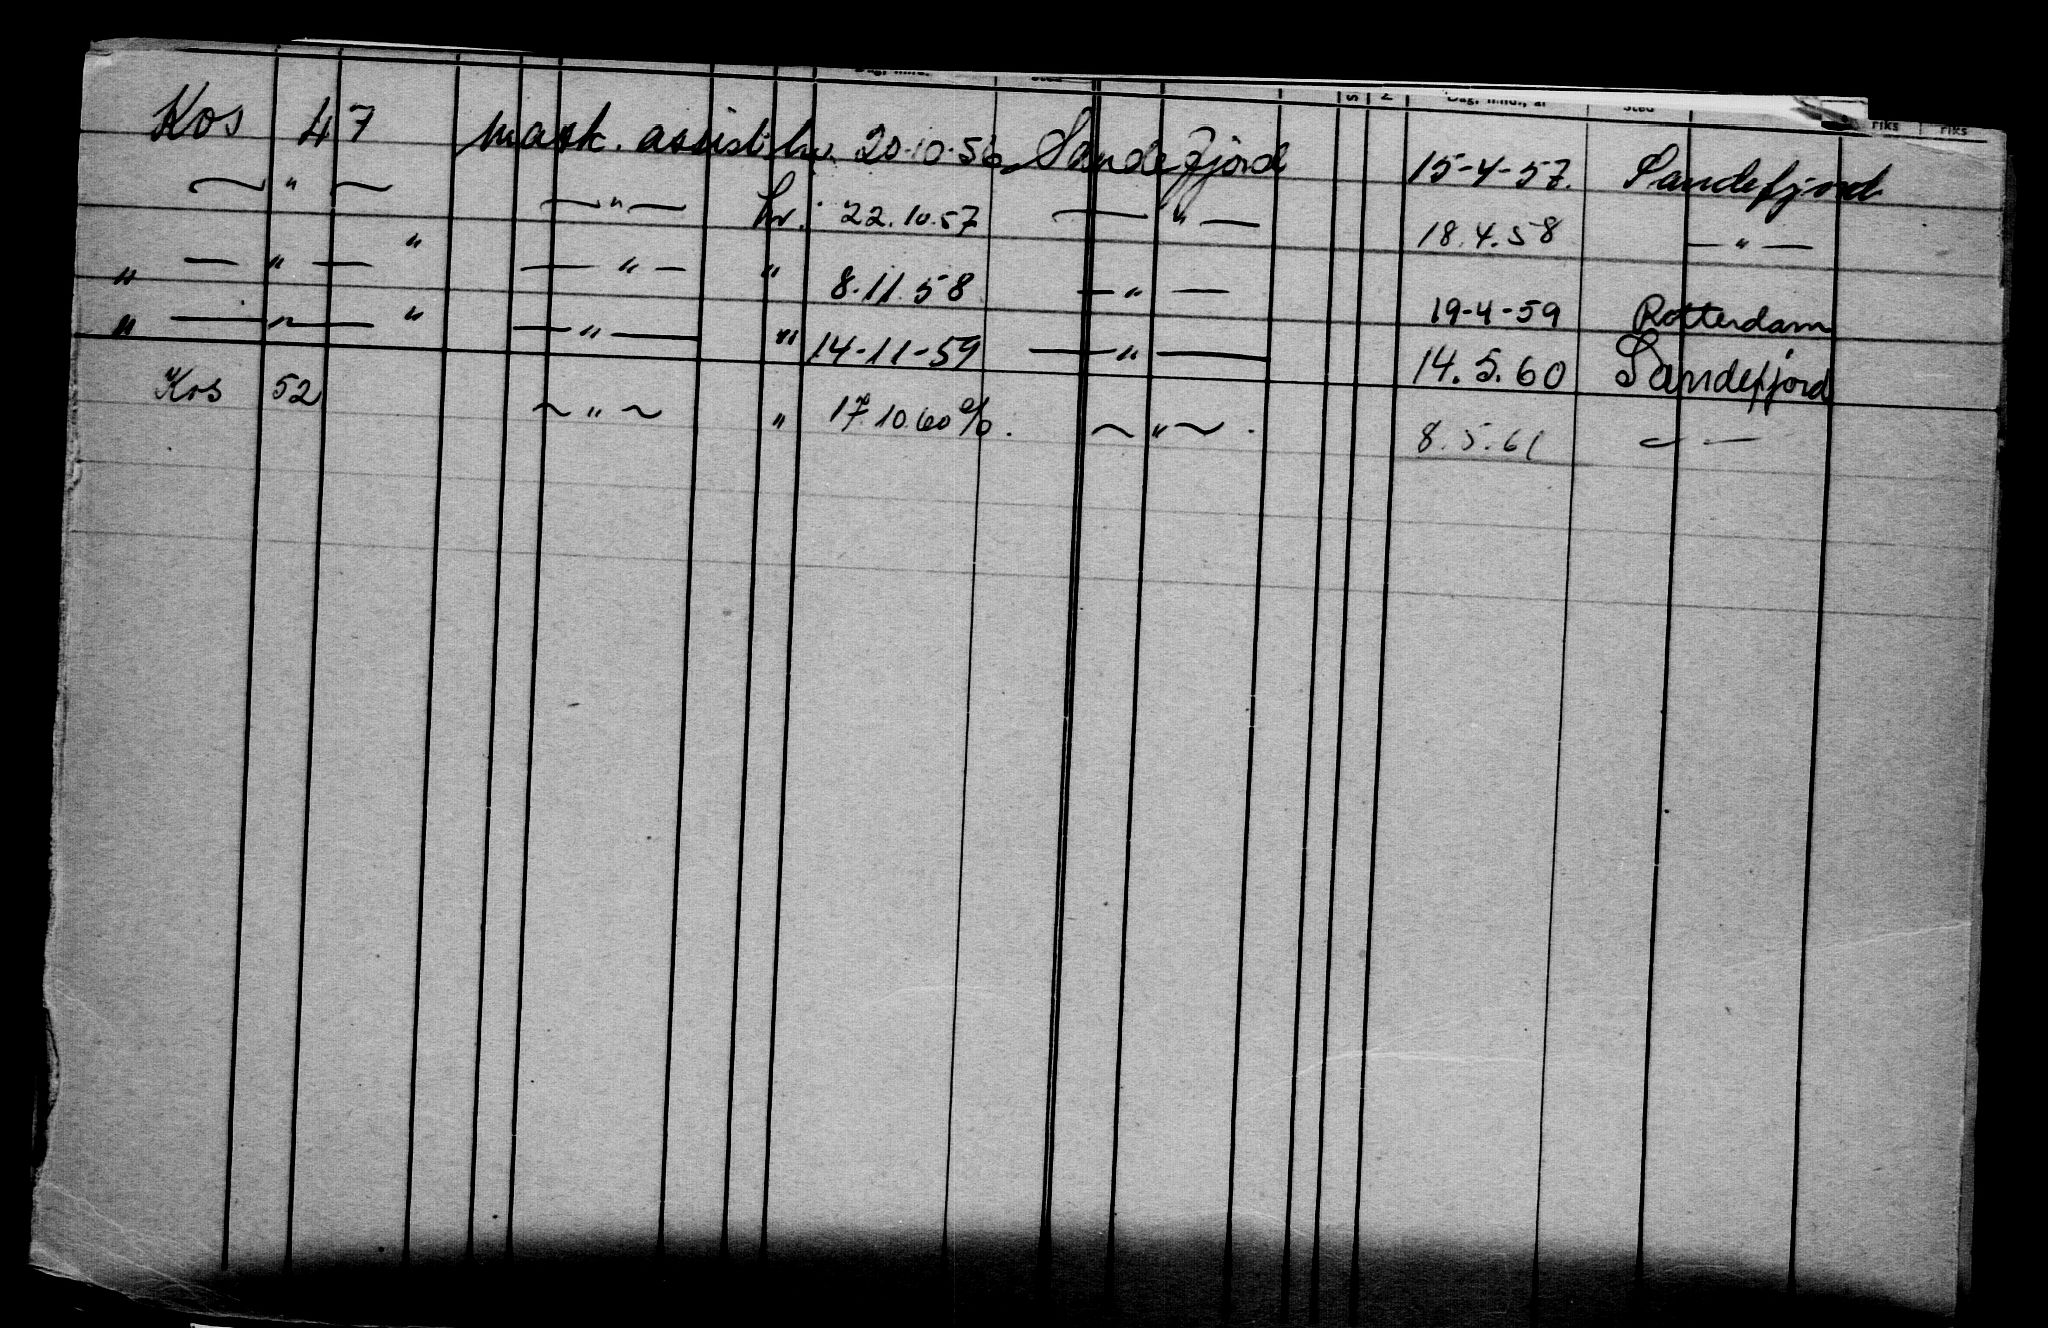 Dag, mnd., år Sted riks riks
Kos 47 mask. assist. hv. 20-10-56 Sandefjord 15-4-57. Sandefjord
— " — — " — hv. 22.10.57 — " — 18.4.58 — " —
" — " — " — " — " 8.11.58 — " — 19-4-59 Rotterdam
" — " — " — " — " 14-11-59 — " — 14.5.60 Sandefjord
Kos 52 ~ " ~ " 17.10.60 ~ " ~ . 8.5.61 — —